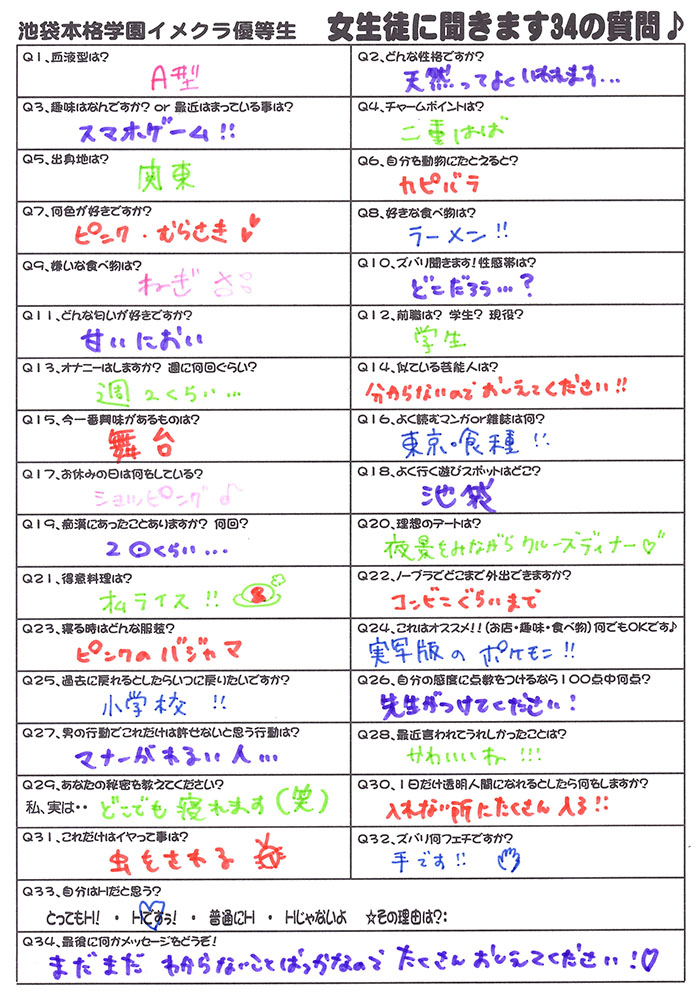 池袋本格学園イメクラ優等生 女生徒に聞きます34の質問♪
Q1、血液型は?
A型
Q2、どんな性格ですか?
天然ってよくいわれます…
Q3、趣味はなんですか? or 最近はまっている事は?
スマホゲーム!!
Q4、チャームポイントは?
二重はば
Q5、出身地は?
関東
Q6、自分を動物にたとえると?
カピバラ
Q7、何色が好きですか?
ピンク・むらさき
Q8、好きな食べ物は?
ラーメン!!
Q9、嫌いな食べ物は?
ねぎ
Q10、ズバリ聞きます!性感帯は?
どこだろう…?
Q11、どんな匂いが好きですか?
甘いにおい
Q12、前職は? 学生? 現役?
学生
Q13、オナニーはしますか? 週に何回ぐらい?
週2くらい…
Q14、似ている芸能人は?
分からないのでおしえてください!!
Q15、今一番興味があるものは?
舞台
Q16、よく読むマンガor雑誌は何?
東京喰種!!
Q17、お休みの日は何をしている?
ショッピング♪
Q18、よく行く遊びスポットはどこ?
池袋
Q19、痴漢にあったことありますか? 何回?
20くらい…
Q20、理想のデートは?
夜景をみながらクルーズディナー♡
Q21、得意料理は?
オムライス!!
Q22、ノーブラでどこまで外出できますか?
コンビニぐらいまで
Q23、寝る時はどんな服装?
ピンクのパジャマ
Q24、これはオススメ!!(お店・趣味・食べ物)何でもOKです♪
実写版のポケモン!!
Q25、過去に戻れるとしたらいつに戻りたいですか?
小学校!!
Q26、自分の感度に点数をつけるなら100点中何点?
先生がつけてください!
Q27、男の行動でこれだけは許せないと思う行動は?
マナーがわるい人…
Q28、最近言われてうれしかったことは?
かわいいね!!!
Q29、あなたの秘密を教えてください?
私、実は・・どこでも寝れます(笑)
Q30、1日だけ透明人間になれるとしたら何をしますか?
入れない所にたくさん入る!!
Q31、これだけはイヤって事は?
虫をされる
Q32、ズバリ何フェチですか?
手です!!
Q33、自分はHだと思う?
とってもH! ・ Hですぅ! ・ 普通にH ・ Hじゃないよ ☆その理由は?:
Q34、最後に何かメッセージをどうぞ!
まだまだわからないことばっかなのでたくさんおしえてください!♡